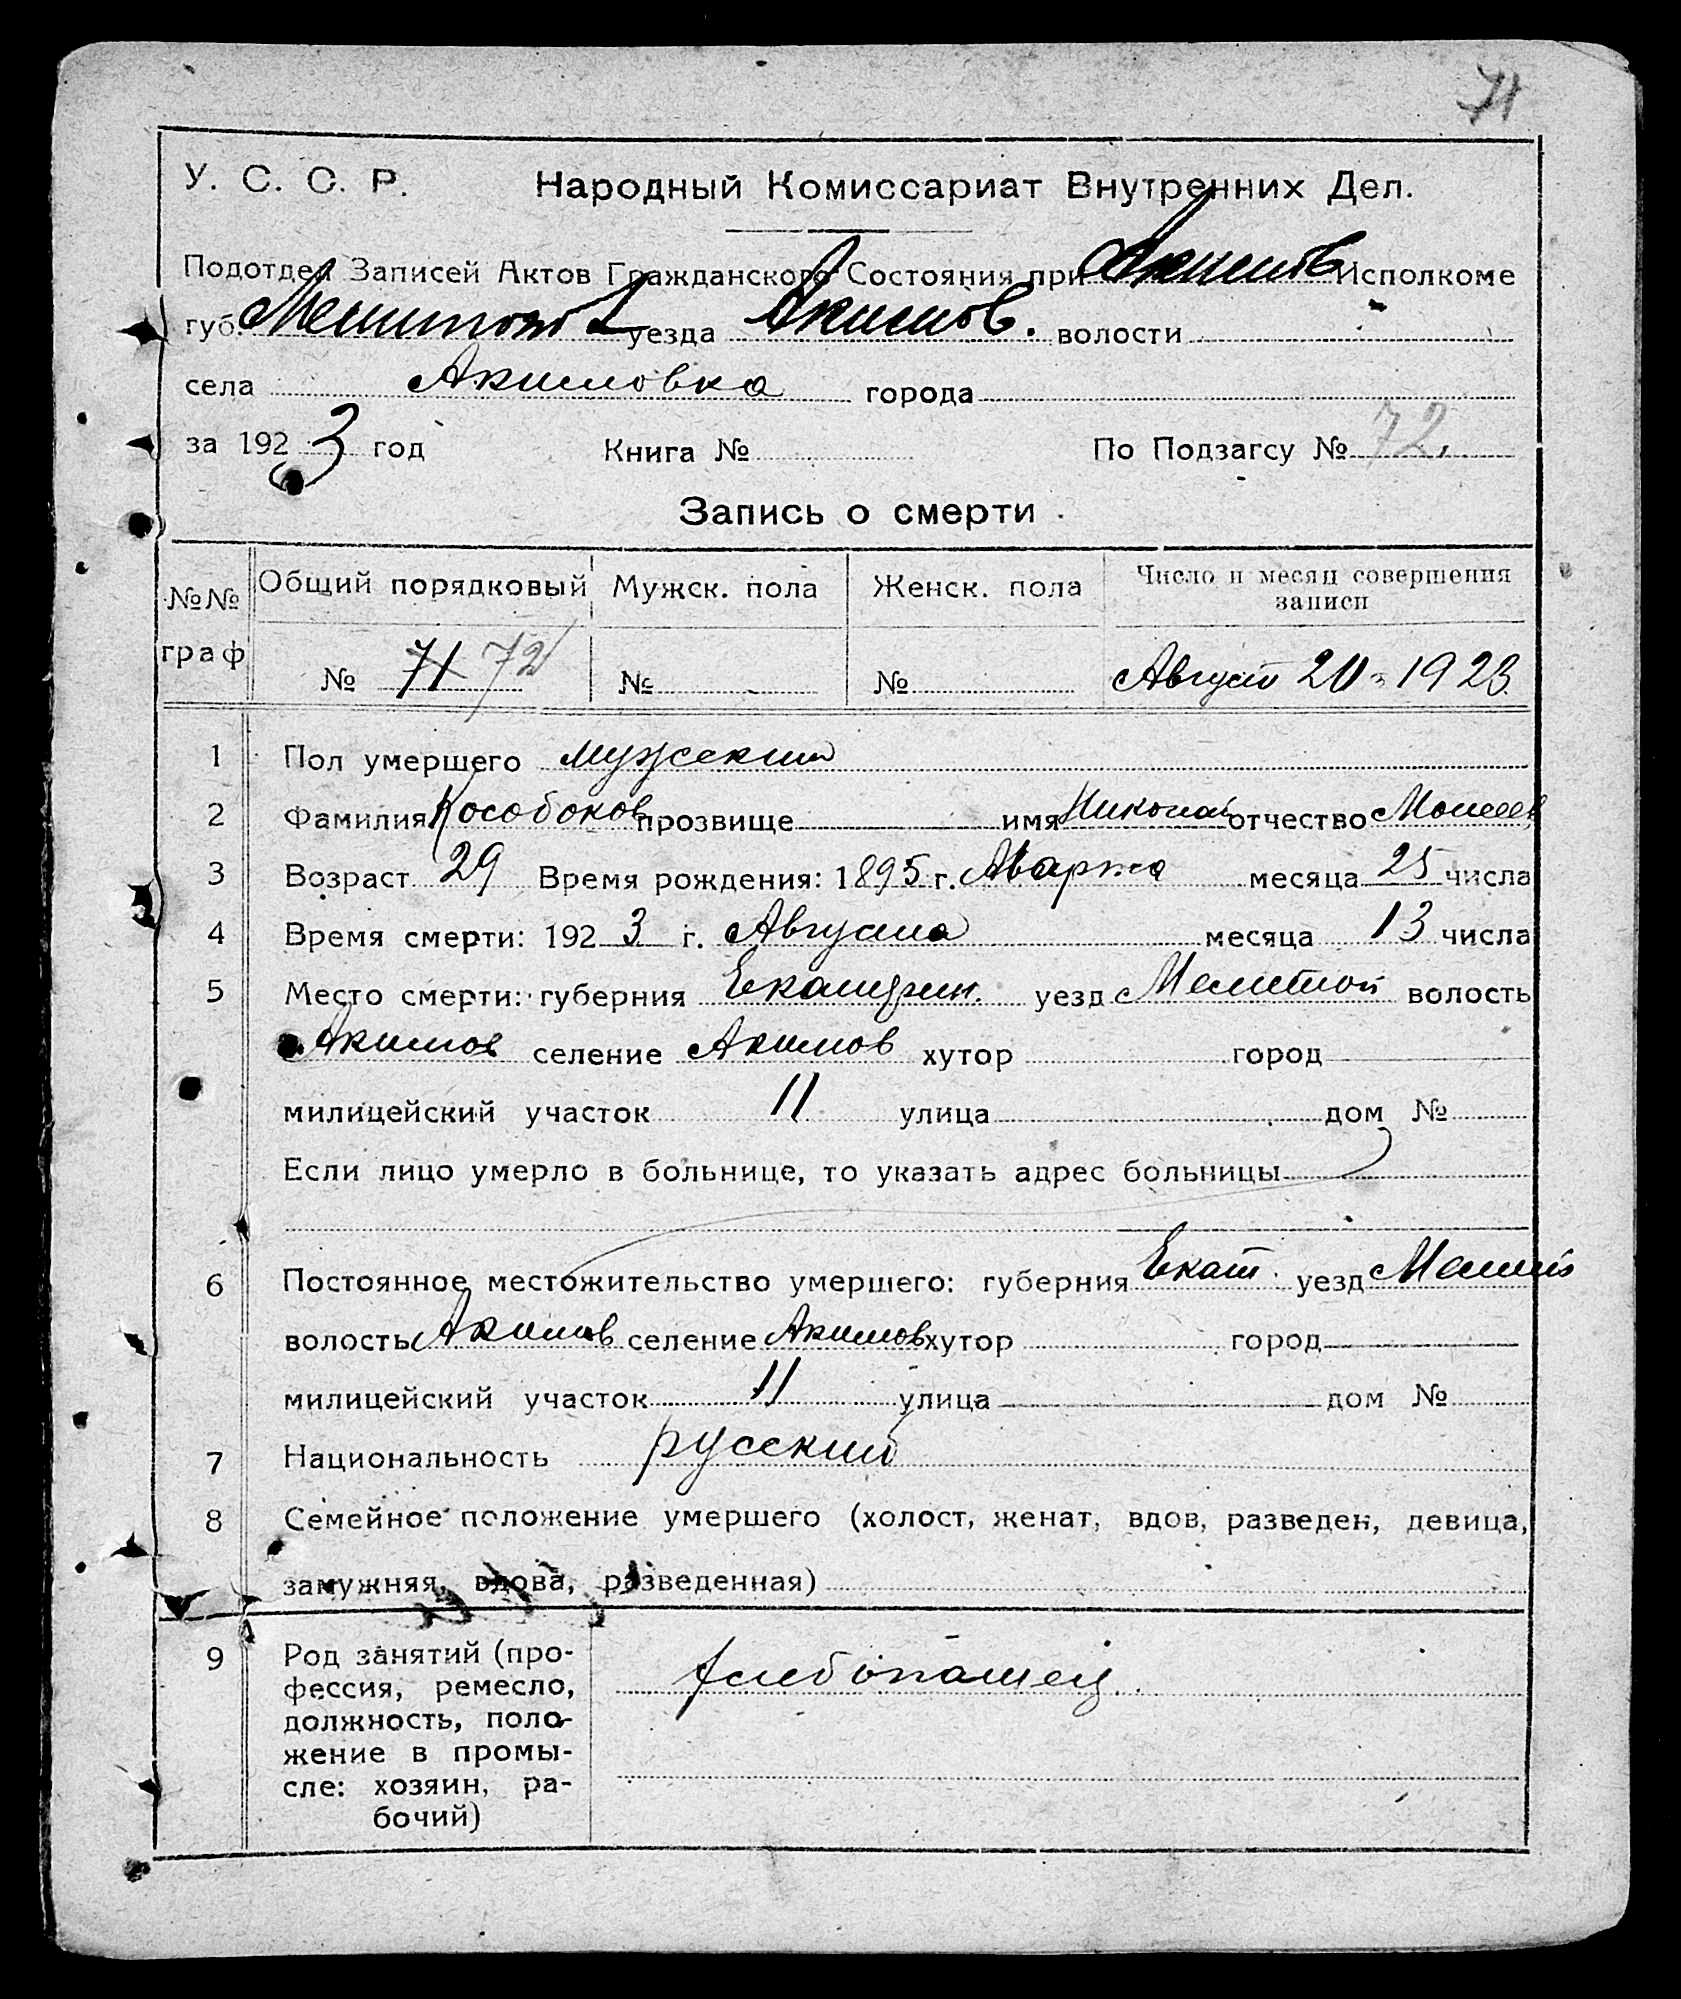 71
У. С. С. Р. Народный Комиссариат Внутренних Дел.
Подотдел Записей Актов Гражданского Состояния при Акимов Исполкоме
губ. Мелитоп уезда Акимов. волости
села Акимовка города
за 1923 год Книга № По Подзагсу № 72.
Запись о смерти
№№ граф Общий порядковый Мужск. пола Женск. пола Число и месяц совершения записи
№ 71 72 № № Август 20 1923
1 Пол умершего мужский
2 Фамилия Кособоков прозвище имя Николай отчество Моисеев
3 Возраст 29 Время рождения: 1895 г. Марта месяца 25 числа
4 Время смерти: 1923 г. Августа месяца 13 числа
5 Место смерти: губерния Екатерин. уезд Мелитпой волость
Акимов селение Акимов хутор город
милицейский участок 11 улица дом №
Если лицо умерло в больнице, то указать адрес больницы
6 Постоянное местожительство умершего: губерния Екат. уезд Мелит
волость Акимов селение Акимов хутор город
милицейский участок 11 улица дом №
7 Национальность русский
8 Семейное положение умершего (холост, женат, вдов, разведен, девица,
замужняя, вдова, разведенная)
9 Род занятий (про-
фессия, ремесло,
должность, поло-
жение в промы-
сле: хозяин, ра-
бочий)
хлебопашец